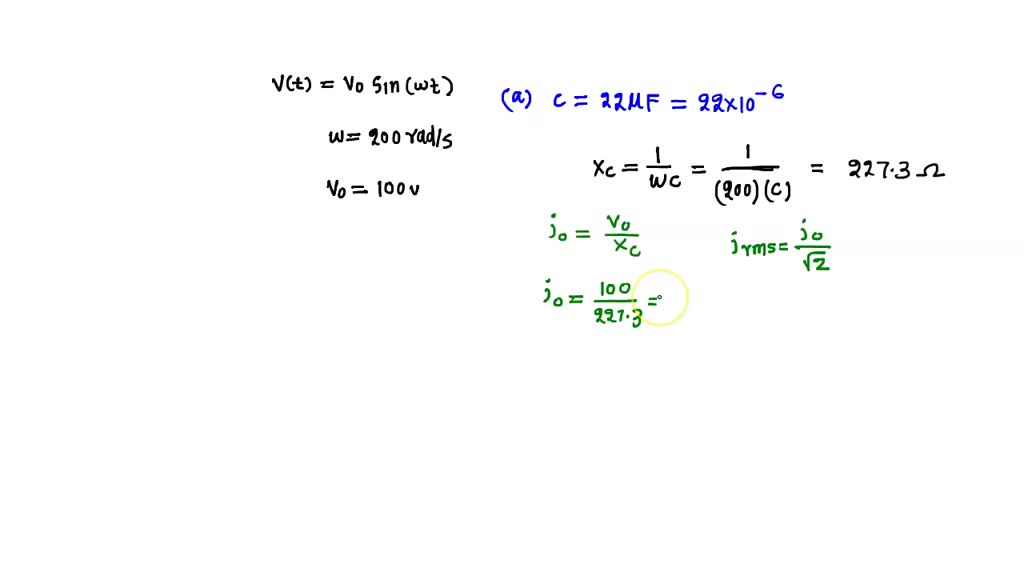 V(t) = V0 Sin (wt)
w = 200 rad/s
V0 = 100 v
(a) C = 22 μF = 22×10^-6
Xc = 1/wc = 1/(200)(c) = 227.3 Ω
i0 = V0/Xc
irms = i0/√2
i0 = 100/227.3 =